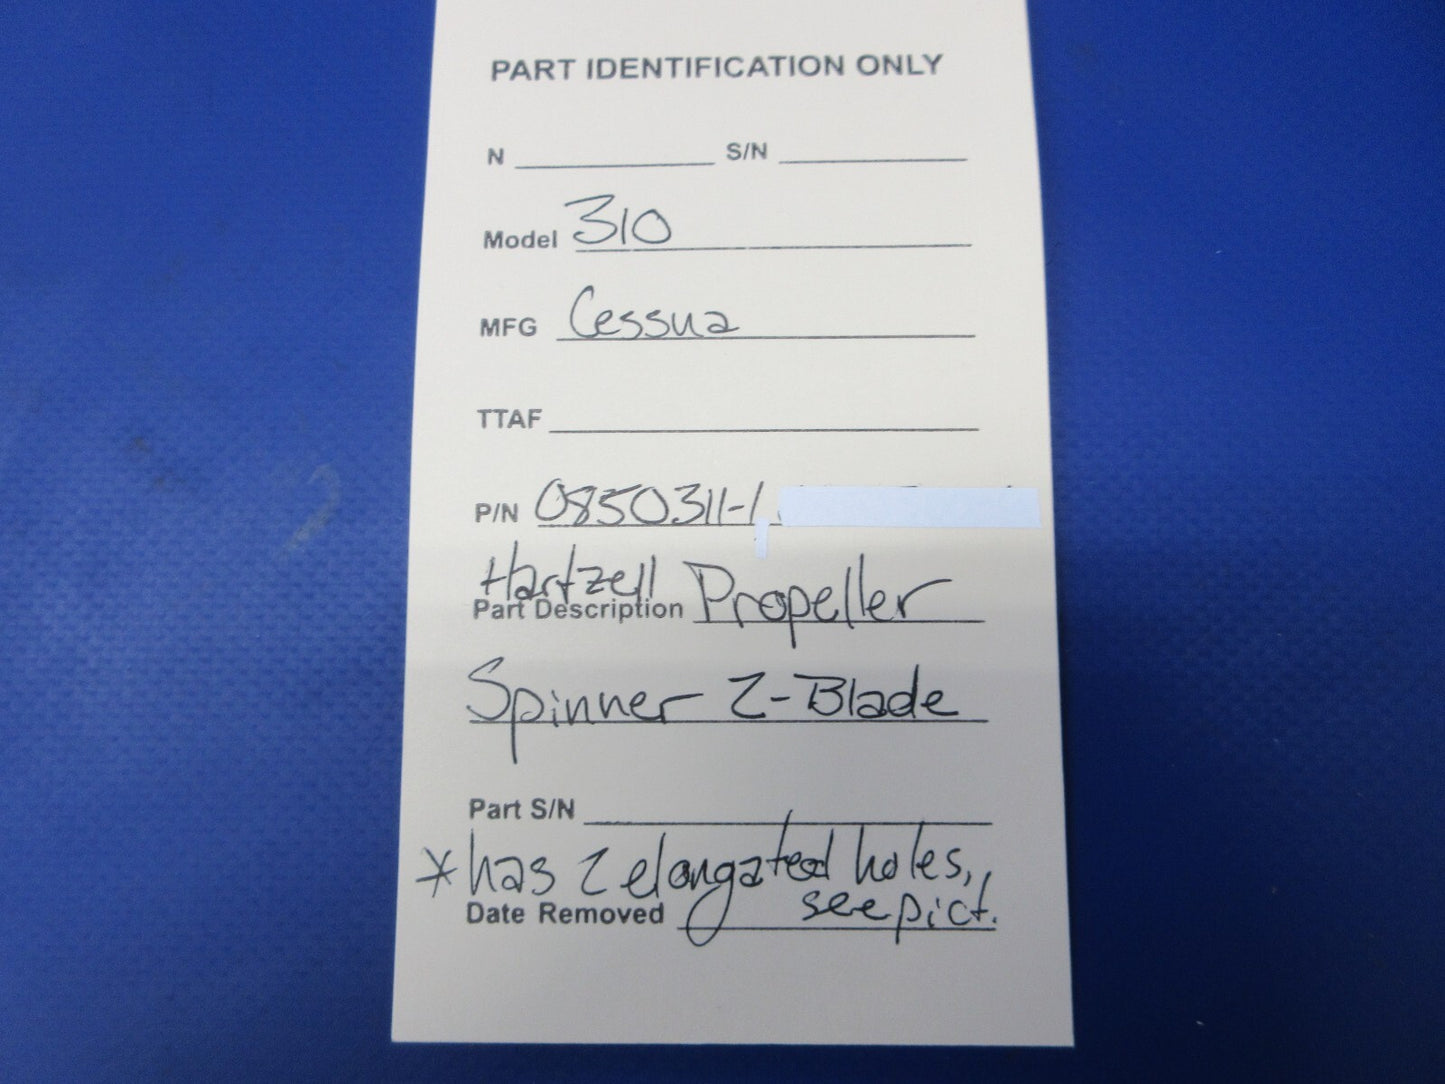 PART IDENTIFICATION ONLY
N S/N
Model 310
MFG Cessna
TTAF
P/N 0850311-1
Hartzell
Part Description Propeller
Spinner 2-Blade
Part S/N
* has 2 elongated holes,
see pict.
Date Removed